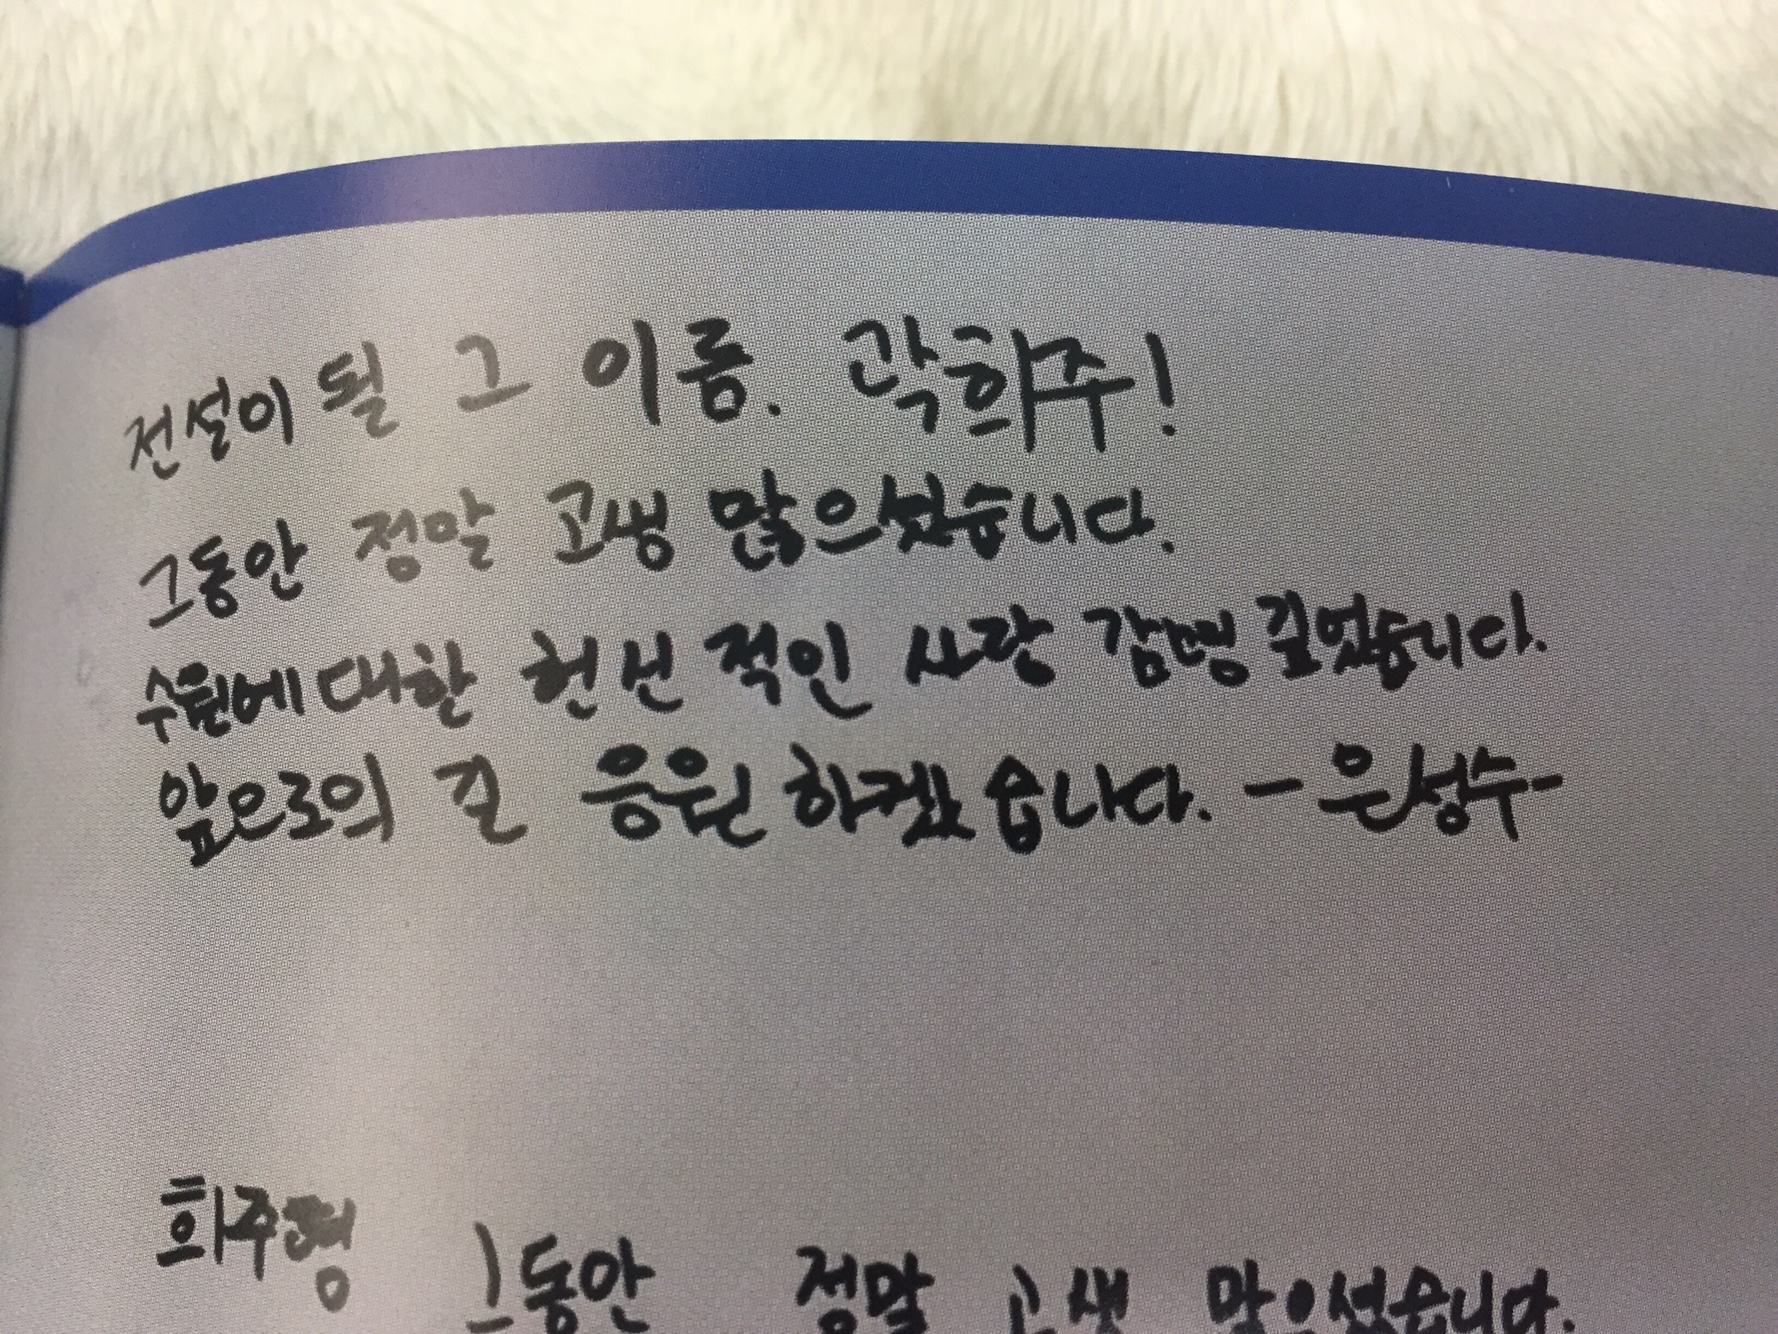 전설이 될 그 이름. 곽희주!
그동안 정말 고생 많으셨습니다.
수원에 대한 헌신적인 사랑 감명 깊었습니다.
앞으로의 길 응원하겠습니다. -은성수-
희주형 그동안 정말 고생 많으셨습니다.